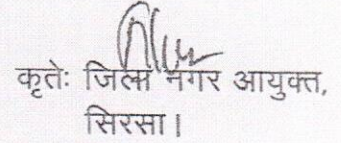 कृतेः जिला नगर आयुक्त,
सिरसा।